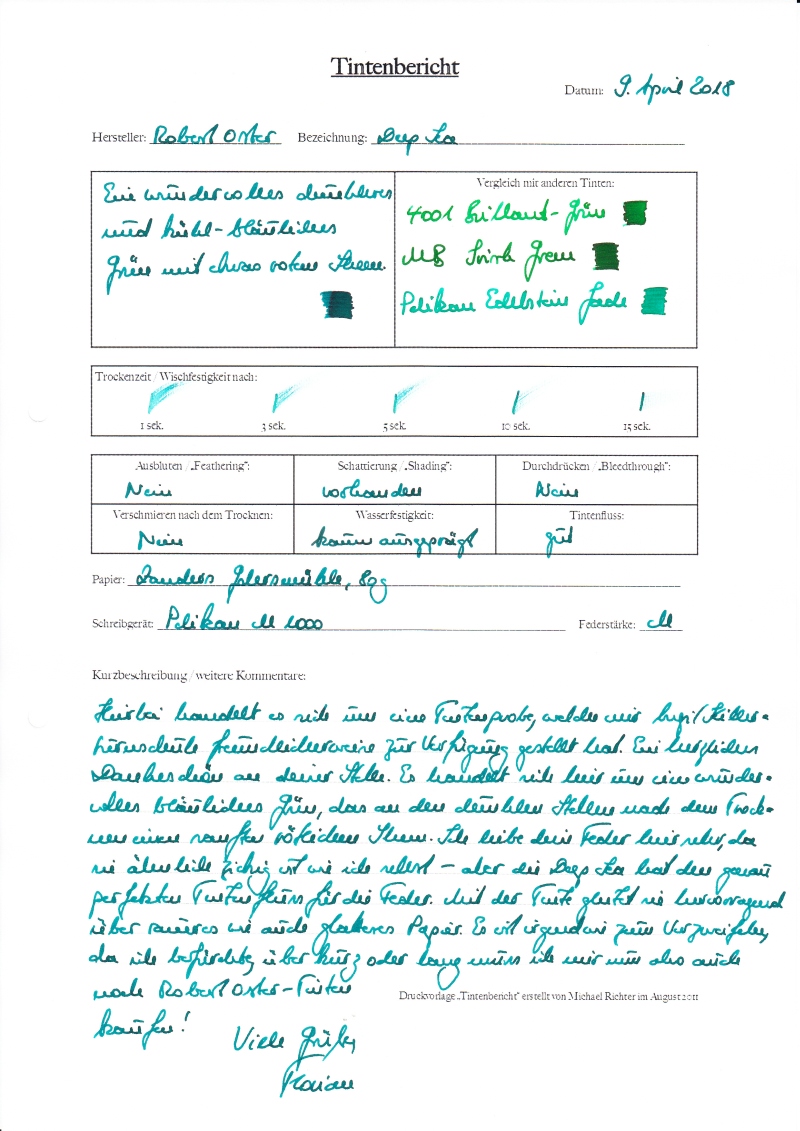 Tintenbericht
Datum: 9. April 2018
Hersteller: Robert Oster Bezeichnung: Deep Sea
Ein wundervolles dunkleres
und kühl-bläuliches
Grün mit etwas rotem Sheen.
Vergleich mit anderen Tinten:
4001 Brillant-Grün
MB Irish Green
Pelikan Edelstein Jade
Trockenzeit / Wischfestigkeit nach:
1 sek. 3 sek. 5 sek. 10 sek. 15 sek.
Ausbluten / „Feathering": Schattierung / „Shading": Durchdrücken / „Bleedthrough":
Nein vorhanden Nein
Verschmieren nach dem Trocknen: Wasserfestigkeit: Tintenfluss:
Nein kaum ausgeprägt gut
Papier: Zanders Gohrsmühle, 80g
Schreibgerät: Pelikan M 1000 Federstärke: M
Kurzbeschreibung / weitere Kommentare:
Hierbei handelt es sich um eine Tintenprobe, welche mir
freundlicherweise zur Verfügung gestellt hat. Ein herzliches
Dankeschön an dieser Stelle. Es handelt sich hier um ein wunder-
volles bläuliches Grün, das an den dunklen Stellen nach dem Trock-
nen einen sanften rötlichen Sheen. Ich liebe diese Feder hier sehr, da
sie ähnlich zickig ist wie ich selbst – aber die Deep Sea hat den genau
perfekten Tintenfluss für die Feder. Mit der Tinte gleitet sie hervorragend
über raueres wie auch glatteres Papier. Es ist irgendwie zum Verzweifeln,
da ich befürchte, über kurz oder lang muss ich mir nun also auch
noch Robert Oster-Tinten
kaufen!
Druckvorlage „Tintenbericht" erstellt von Michael Richter im August 2011
Viele Grüße,
Florian